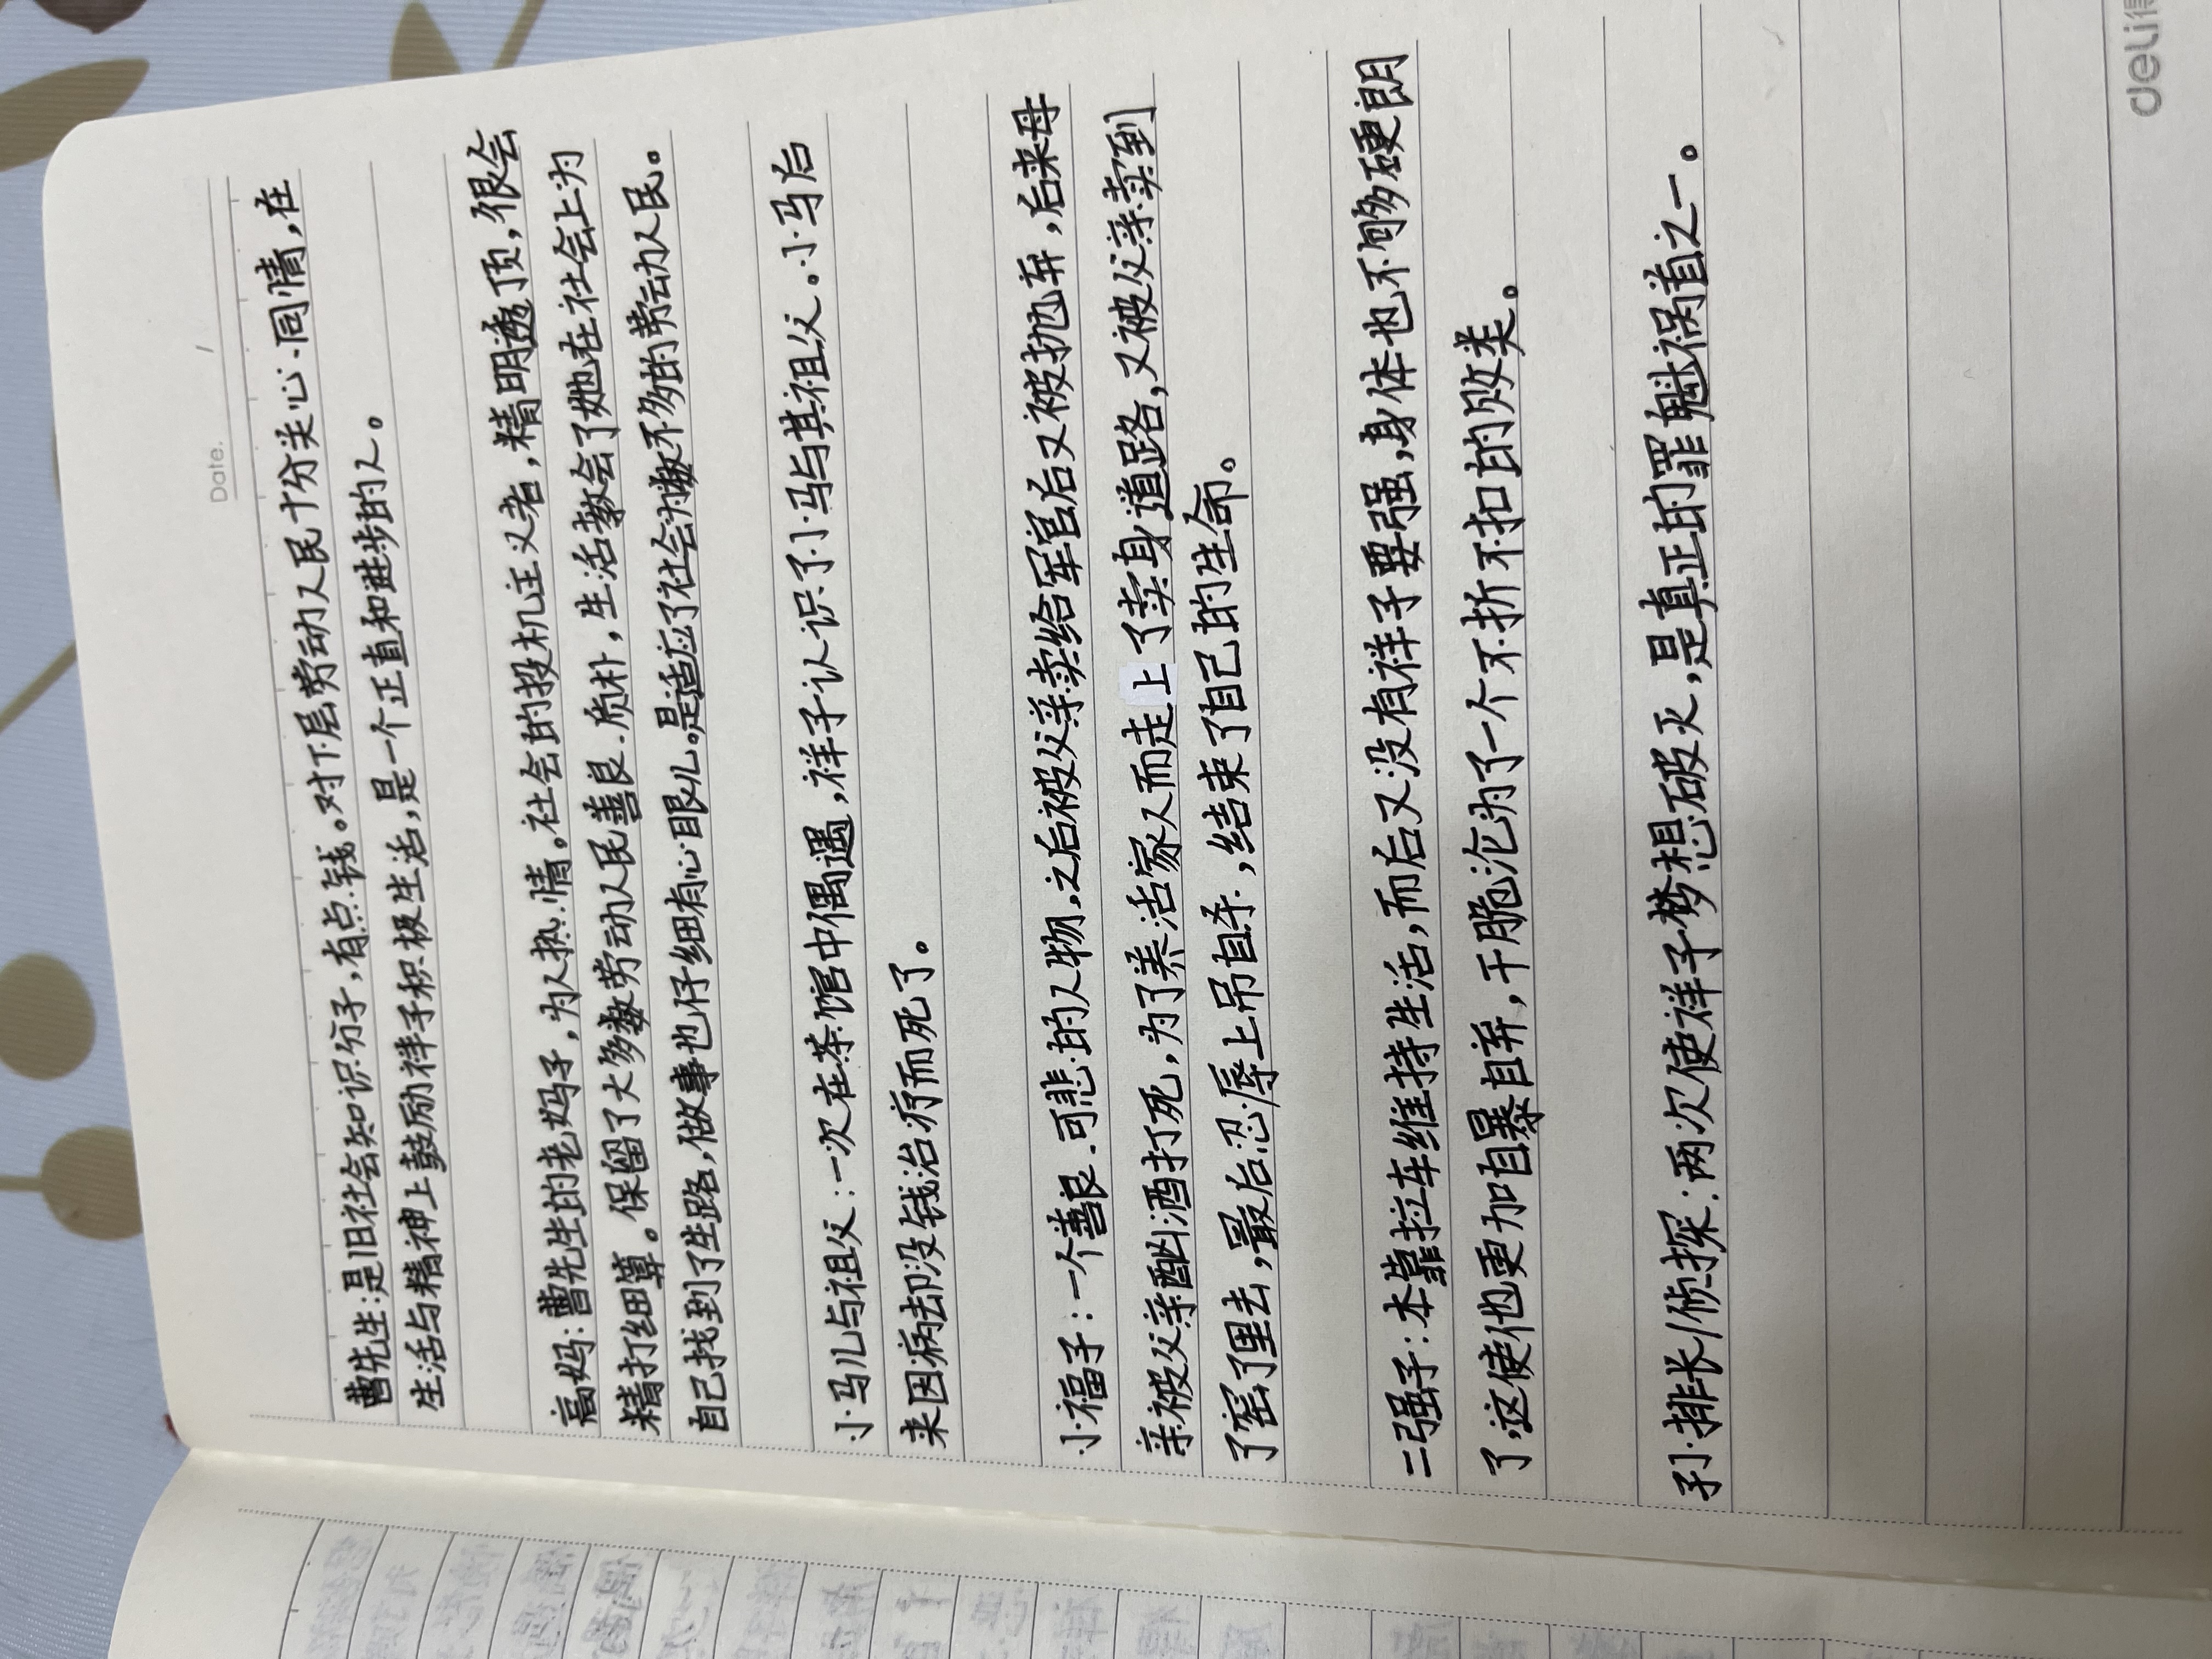 Date. /
曹先生:是旧社会知识分子,有点钱。对下层劳动人民十分关心、同情,在
生活与精神上鼓励祥子积极生活,是一个正直和进步的人。
高妈:曹先生的老妈子,为人热情。社会的投机主义者,精明透顶,很会
精打细算。保留了大多数劳动人民善良、质朴,生活教会了她在社会上为
自己找到了生路,做事也仔细有心眼儿。是适应了社会为数不多的劳动人民。
小马儿与祖父:一次在茶馆中偶遇,祥子认识了小马与其祖父。小马后
来因病却没钱治疗而死了。
小福子:一个善良、可悲的人物,之后被父亲卖给军官后又被抛弃,后来母
亲被父亲酗酒打死,为了养活家人而走上了卖身道路,又被父亲卖到
了窑子里去,最后忍辱上吊自杀,结束了自己的生命。
二强子:本靠拉车维持生活,而后又没有祥子要强,身体也不够硬朗
了,这使他更加自暴自弃,干脆沦为了一个不折不扣的败类。
孙排长/侦探:两次使祥子梦想破灭,是真正的罪魁祸首之一。
deli得